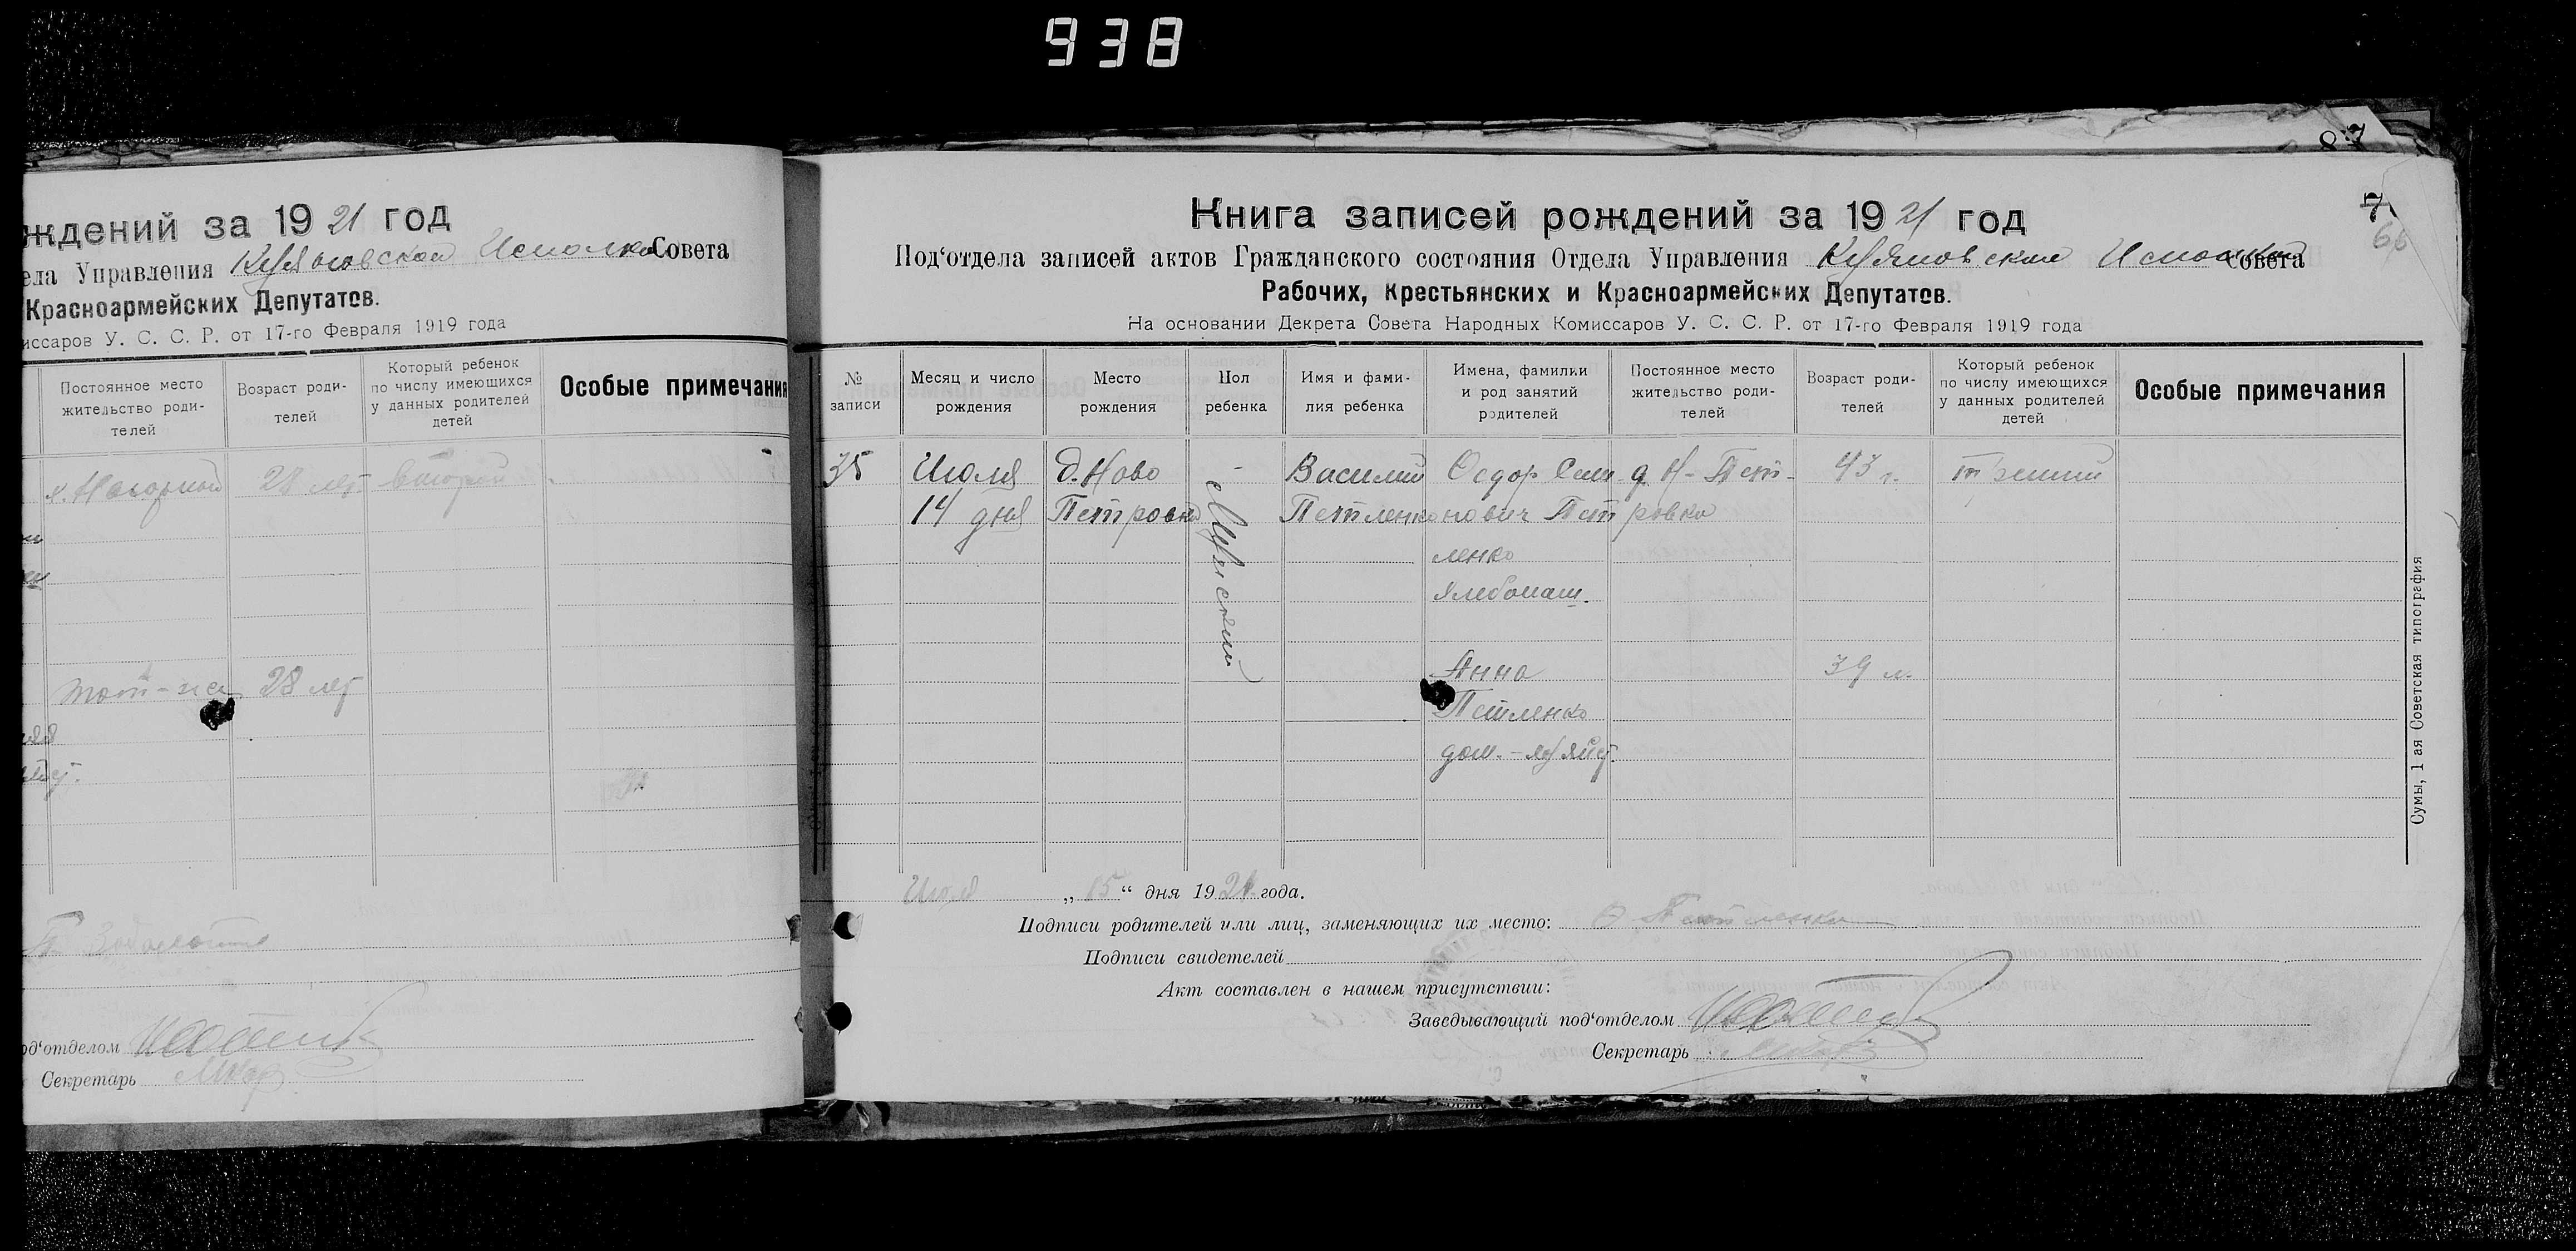 938
87
ждений за 1921 год
ела Управления Совета
Красноармейских Депутатов.
иссаров У. С. С. Р. от 17-го Февраля 1919 года
Постоянное место жительство роди-телей
Возраст роди-телей
Который ребенок по числу имеющихся у данных родителей детей
Особые примечания
28 лет второй
28 лет
од‘отделом
Секретарь
Книга записей рождений за 1921 год
7
66
Под‘отдела записей актов Гражданского состояния Отдела Управления Совета
Рабочих, Крестьянских и Красноармейских Депутатов.
На основании Декрета Совета Народных Комиссаров У. С. С. Р. от 17-го Февраля 1919 года
№ записи
Месяц и число рождения
Место рождения
Пол ребенка
Имя и фами-лия ребенка
Имена, фамилии и род занятий родителей
Постоянное место жительство роди-телей
Возраст роди-телей
Который ребенок по числу имеющихся у данных родителей детей
Особые примечания
35 Июля д. Ново - Василий Федор Сем д. Н-Пет- 43 г. третий
14 дня Петровка Петленко нович Пет ровка
Мужской
ленко
Анна 39 л.
Петленко
дом.
Июля „15“ дня 1921 года.
Подписи родителей или лиц, заменяющих их место: Петленко
Подписи свидетелей
Акт составлен в нашем присутствии:
Заведывающий под‘отделом
Секретарь
Сумы, 1 ая Советская типография